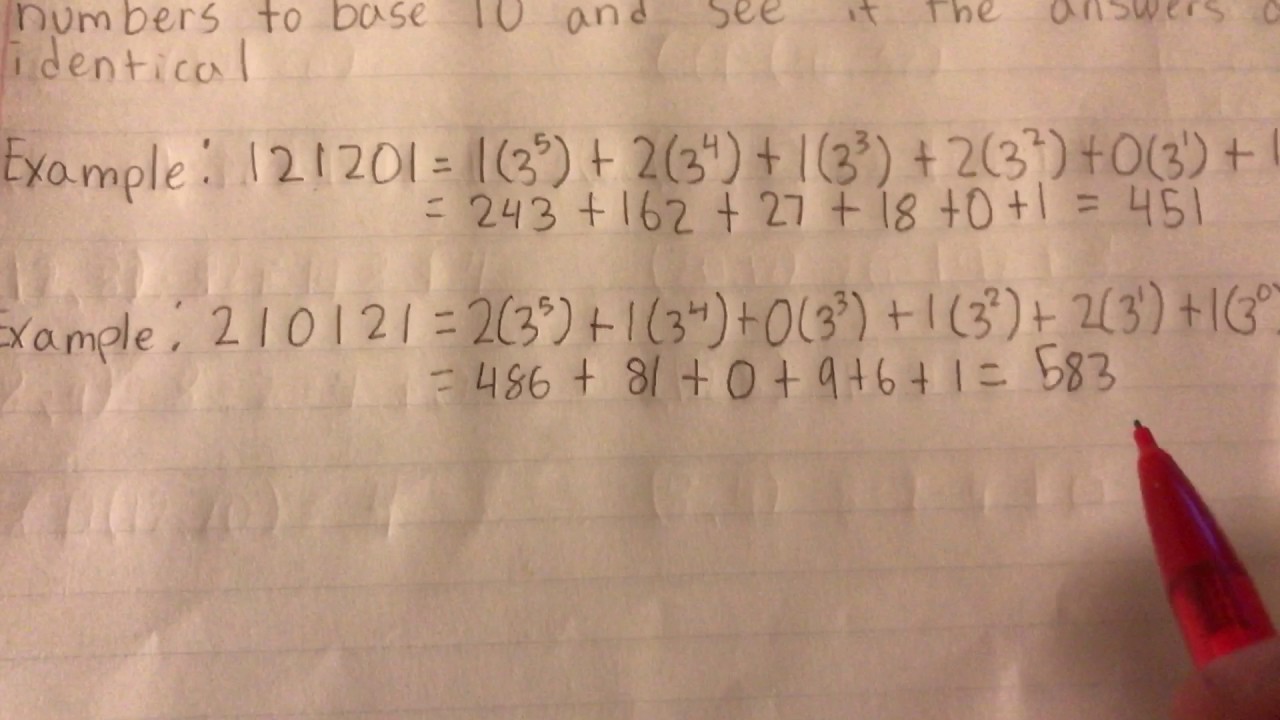 numbers to base 10 and see if the answers
identical
Example: 121201 = 1(3⁵) + 2(3⁴) + 1(3³) + 2(3²) + 0(3¹) + 1
= 243 + 162 + 27 + 18 + 0 + 1 = 451
Example: 210121 = 2(3⁵) + 1(3⁴) + 0(3³) + 1(3²) + 2(3¹) + 1(3⁰)
= 486 + 81 + 0 + 9 + 6 + 1 = 583